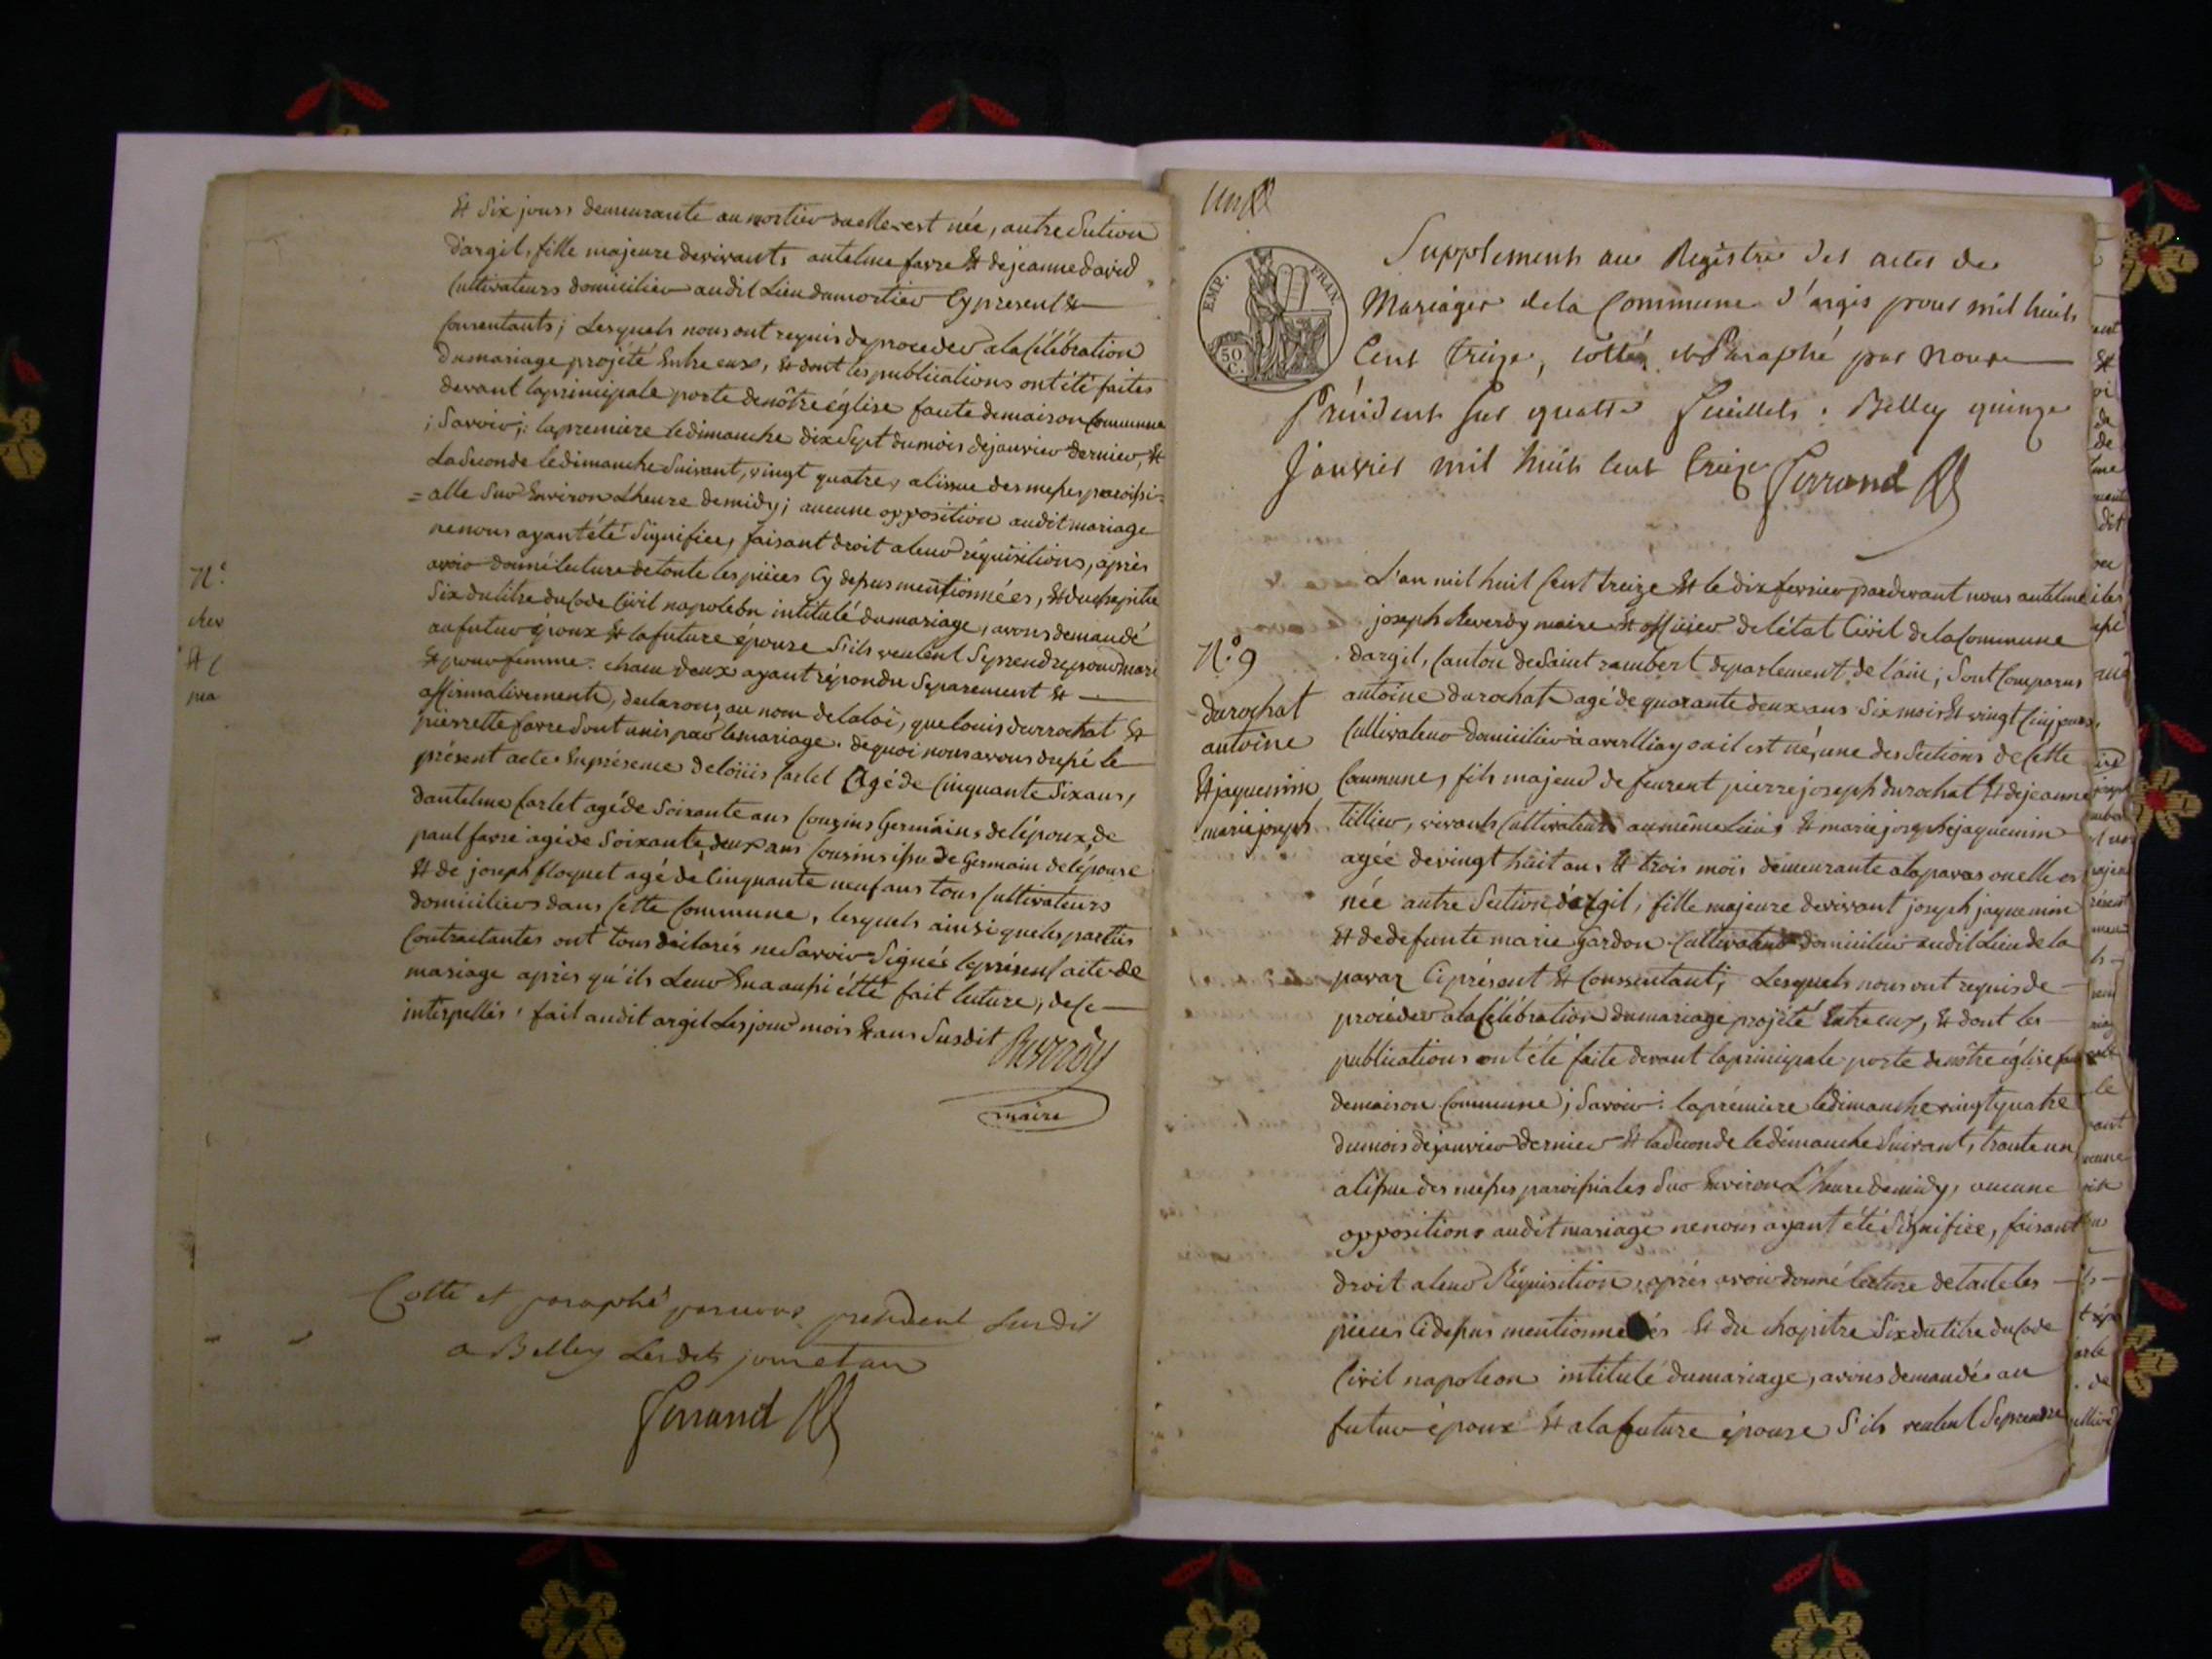 Et Six jours demeurante au mortier ou elle est née, autre Section
d'argil, fille majeure de vivants antelme favre Et de jeanne david
Cultivateurs domiciliés audit Lieu du mortier Cy present Et
Consentants; Lesquels nous ont requis de proceder a la Célébration
du mariage projété Entre eux, Et dont les publications ont été faites
devant la principale porte de nôtre église faute de maison Commune
; Savoir; la premiere le dimanche dix Sept du mois de janvier dernier, Et
La Seconde le dimanche Suivant, vingt quatre, a lissue des messes paroissi=
=alle Sur Environ L'heure de midy; aucune opposition audit mariage
ne nous ayant été Signifiée, faisant droit a leur réquisitions, après
avoir donné lecture de toute les pièces Cy dessus mentionnées, Et du chapitre
Six du titre du Code Civil napoleon intitulé du mariage, avons demandé
au futur époux Et la future épouse S'ils veulent Se prendre pour mari
Et pour femme. chacun d'eux ayant répondu Separement Et
affirmativement, declarons au nom de la loi, que louis durrochat Et
pierrette favre Sont unis par le mariage. de quoi nous avons dressé le
présent acte. En présence de loüis Carlet Agé de Cinquante Six ans,
d'antelme Carlet agé de Soixante ans Cousins Germains de l'époux, de
paul favre agé de Soixante deux ans Cousins issu de Germain de l'épouse
Et de joseph floquet agé de Cinquante neuf ans tous Cultivateurs
domiciliés dans Cette Commune, lesquels ainsi que les partiis
Contractantes ont tous déclarés ne Savoir Signés le présent acte de
mariage après qu'ils Leur En a aussi étté fait lecture, de Ce
interpellés. fait audit argil Les jour mois Et ans Susdit
Reverdy
maire
Cotté et paraphé par nous president Susdit
a Belley Lesdits jour et an
Ferrand
N.°
Et
Supplement au Registre des actes de
Mariages de la Commune d'argis pour mil huit
Cent treize, cotté et Paraphé par nous
Président Sur quatre feuillets. Belley quinze
Janvier mil huit Cent treize Ferrand
EMP. FRAN.
50 C.
L'an mil huit Cent treize Et le dix fevrier pardevant nous antelme
joseph Reverdy maire Et officier de l'état Civil de la Commune
d'argil, Canton de Saint rambert departement de l'ain; Sont Comparus
antoine durochat agé de quarante deux ans Six mois Et vingt Cinq jours,
Cultivateur domicilier à averlliay ou il est né, une des Sections de Cette
Commune, fils majeur de feu pierre joseph durochat Et de jeanne
tillier, vivants Cultivateurs au même lieu; Et marie joseph jaquemin
agée de vingt huit ans, Et trois mois demeurante a la pavas ou elle es
née autre Section d'argil, fille majeure de vivant joseph jaquemin
Et de defunte marie gardon Cultivateurs domicilier audit Lieu de la
pavaz Ci présent Et Conssentant; Lesquels nous ont requis de
procéder a la Célébration du mariage projété Entre eux, Et dont les
publications ont été faite devant la principale porte de nôtre église
de maison Commune; Savoir: la prémiere le dimanche vingt quatre
du mois de janvier dernier Et la Seconde le dimanche Suivant, trante un,
a lissue des messes paroissiales Sur Environ L'heure de midy, aucune
oppositions audit mariage ne nous ayant été Signifiée, faisant
droit a leur Réquisition, après avoir donné lecture de toute les
pieces Ci dessus mentionnées Et du chapitre Six du titre du Code
Civil napoleon intitulé du mariage, avons demandé au
futur époux Et a la future épouse S'ils veulent Se prendre
N.° 9
durochat
antoine
Et jaquemin
marie joseph